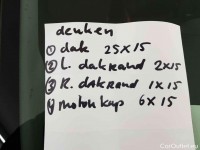 deuken
① dak 25x15
② L. dakrand 2x15
③ R. dakrand 1x15
④ motorkap 6x15